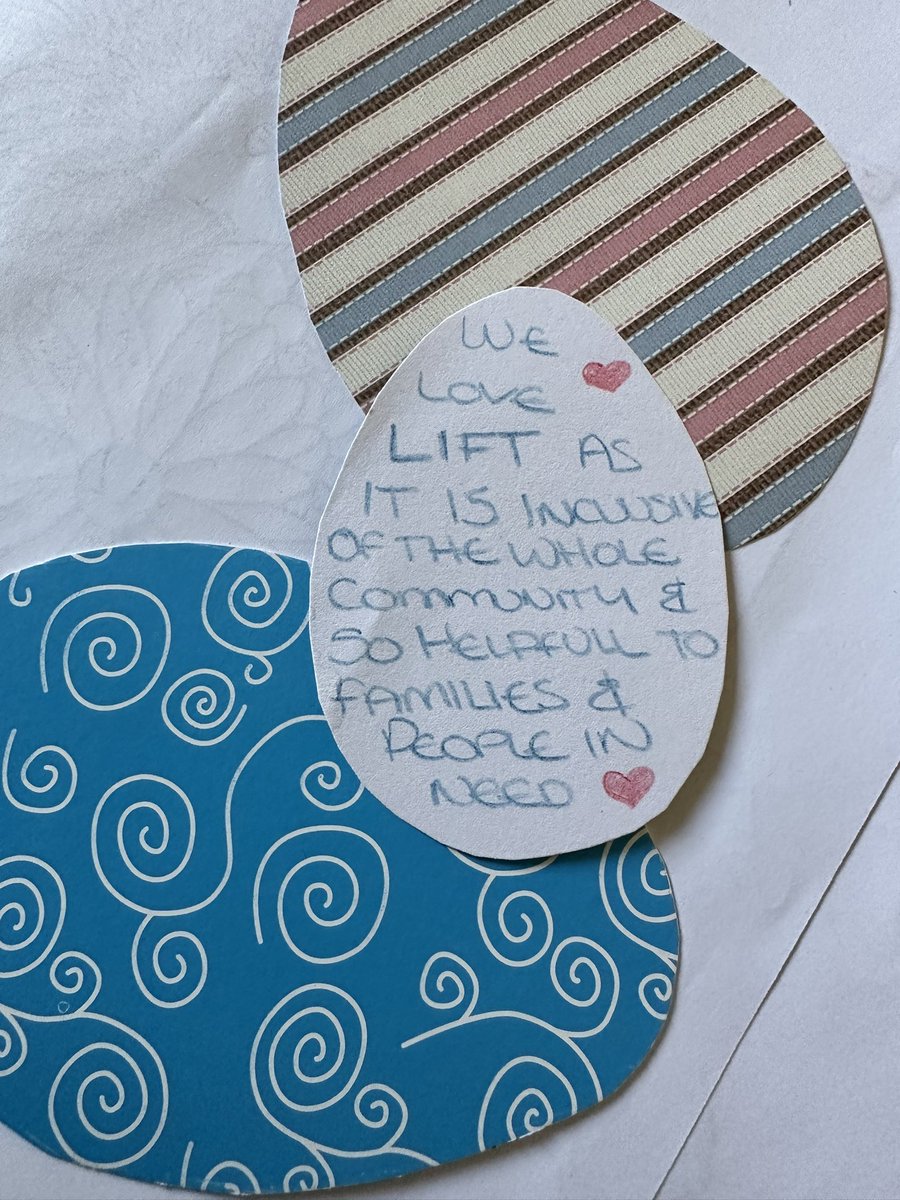 WE
LOVE
LIFT AS
IT IS INCLUSIVE
OF THE WHOLE
COMMUNITY &
SO HELPFULL TO
FAMILIES &
PEOPLE IN
NEED